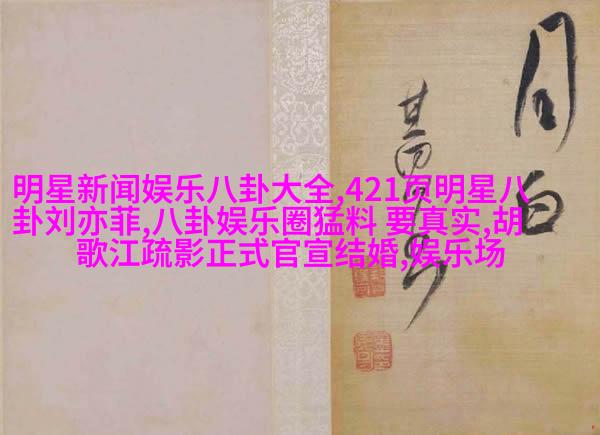 明星新闻娱乐八卦大全,421页明星八
卦刘亦菲,八卦娱乐圈猛料 要真实,胡
歌江疏影正式官宣结婚,娱乐场
月白